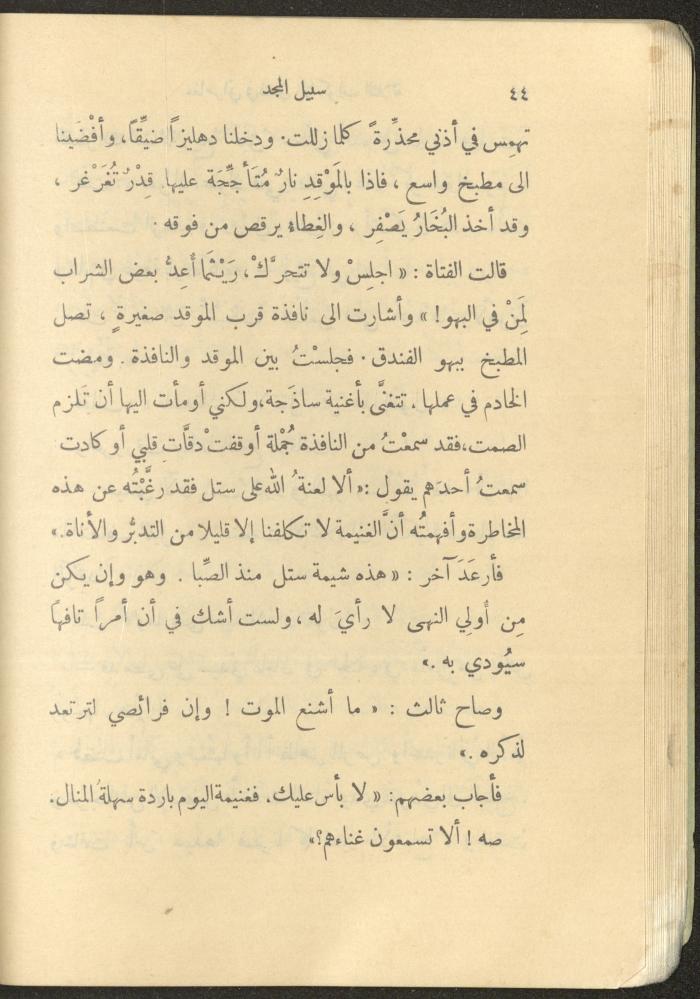 ٤٤
سبيل المجد
تهمِس في أذني محذِّرةً كلما زللت. ودخلنا دهليزاً ضيِّقاً، وأفْضَينا
الى مطبخ واسع ، فاذا بالمَوْقِدِ نارٌ مُتَأَجِّجَة عليها قِدْرٌ تُغَرْغر ،
وقد أخذ البُخَارُ يَصْفِر ، والغِطاء يرقص من فوقه .
قالت الفتاة : « اجلِسْ ولا تتحرَّكْ، رَيْثَمَا أعِدُّ بعض الشراب
لِمَنْ في البهو! » وأشارت الى نافذة قرب الموقد صغيرةٍ ، تصل
المطبخ ببهو الفندق . فجلسْتُ بين الموقد والنافذة . ومضت
الخادم في عملها ، تتغنَّى بأغنية ساذَجة، ولكني أومأت اليها أن تَلزم
الصمت، فقد سمعْتُ من النافذة جُمْلة أوقفتْ دقَّاتِ قلبي أو كادت
سمعتُ أحدَهم يقول : « ألا لعنةُ الله على ستل فقد رغَّبْتُه عن هذه
المخاطرة وأفهمتُه أنَّ الغنيمة لا تكلفنا إلا قليلا من التدبُّر والأناة. »
فأرعَدَ آخر : « هذه شيمة ستل منذ الصِّبا . وهو وإن يكن
مِن أولِي النهى لا رأيَ له ، ولست أشك في أن أمراً تافهاً
سيُودي به . »
وصاح ثالث : « ما أشنع الموت ! وإن فرائصي لترتعد
لذكره . »
فأجاب بعضهم: « لا بأس عليك. فغنيمة اليوم باردة سهلةُ المنال.
صه ! ألا تسمعون غناءهم؟ »